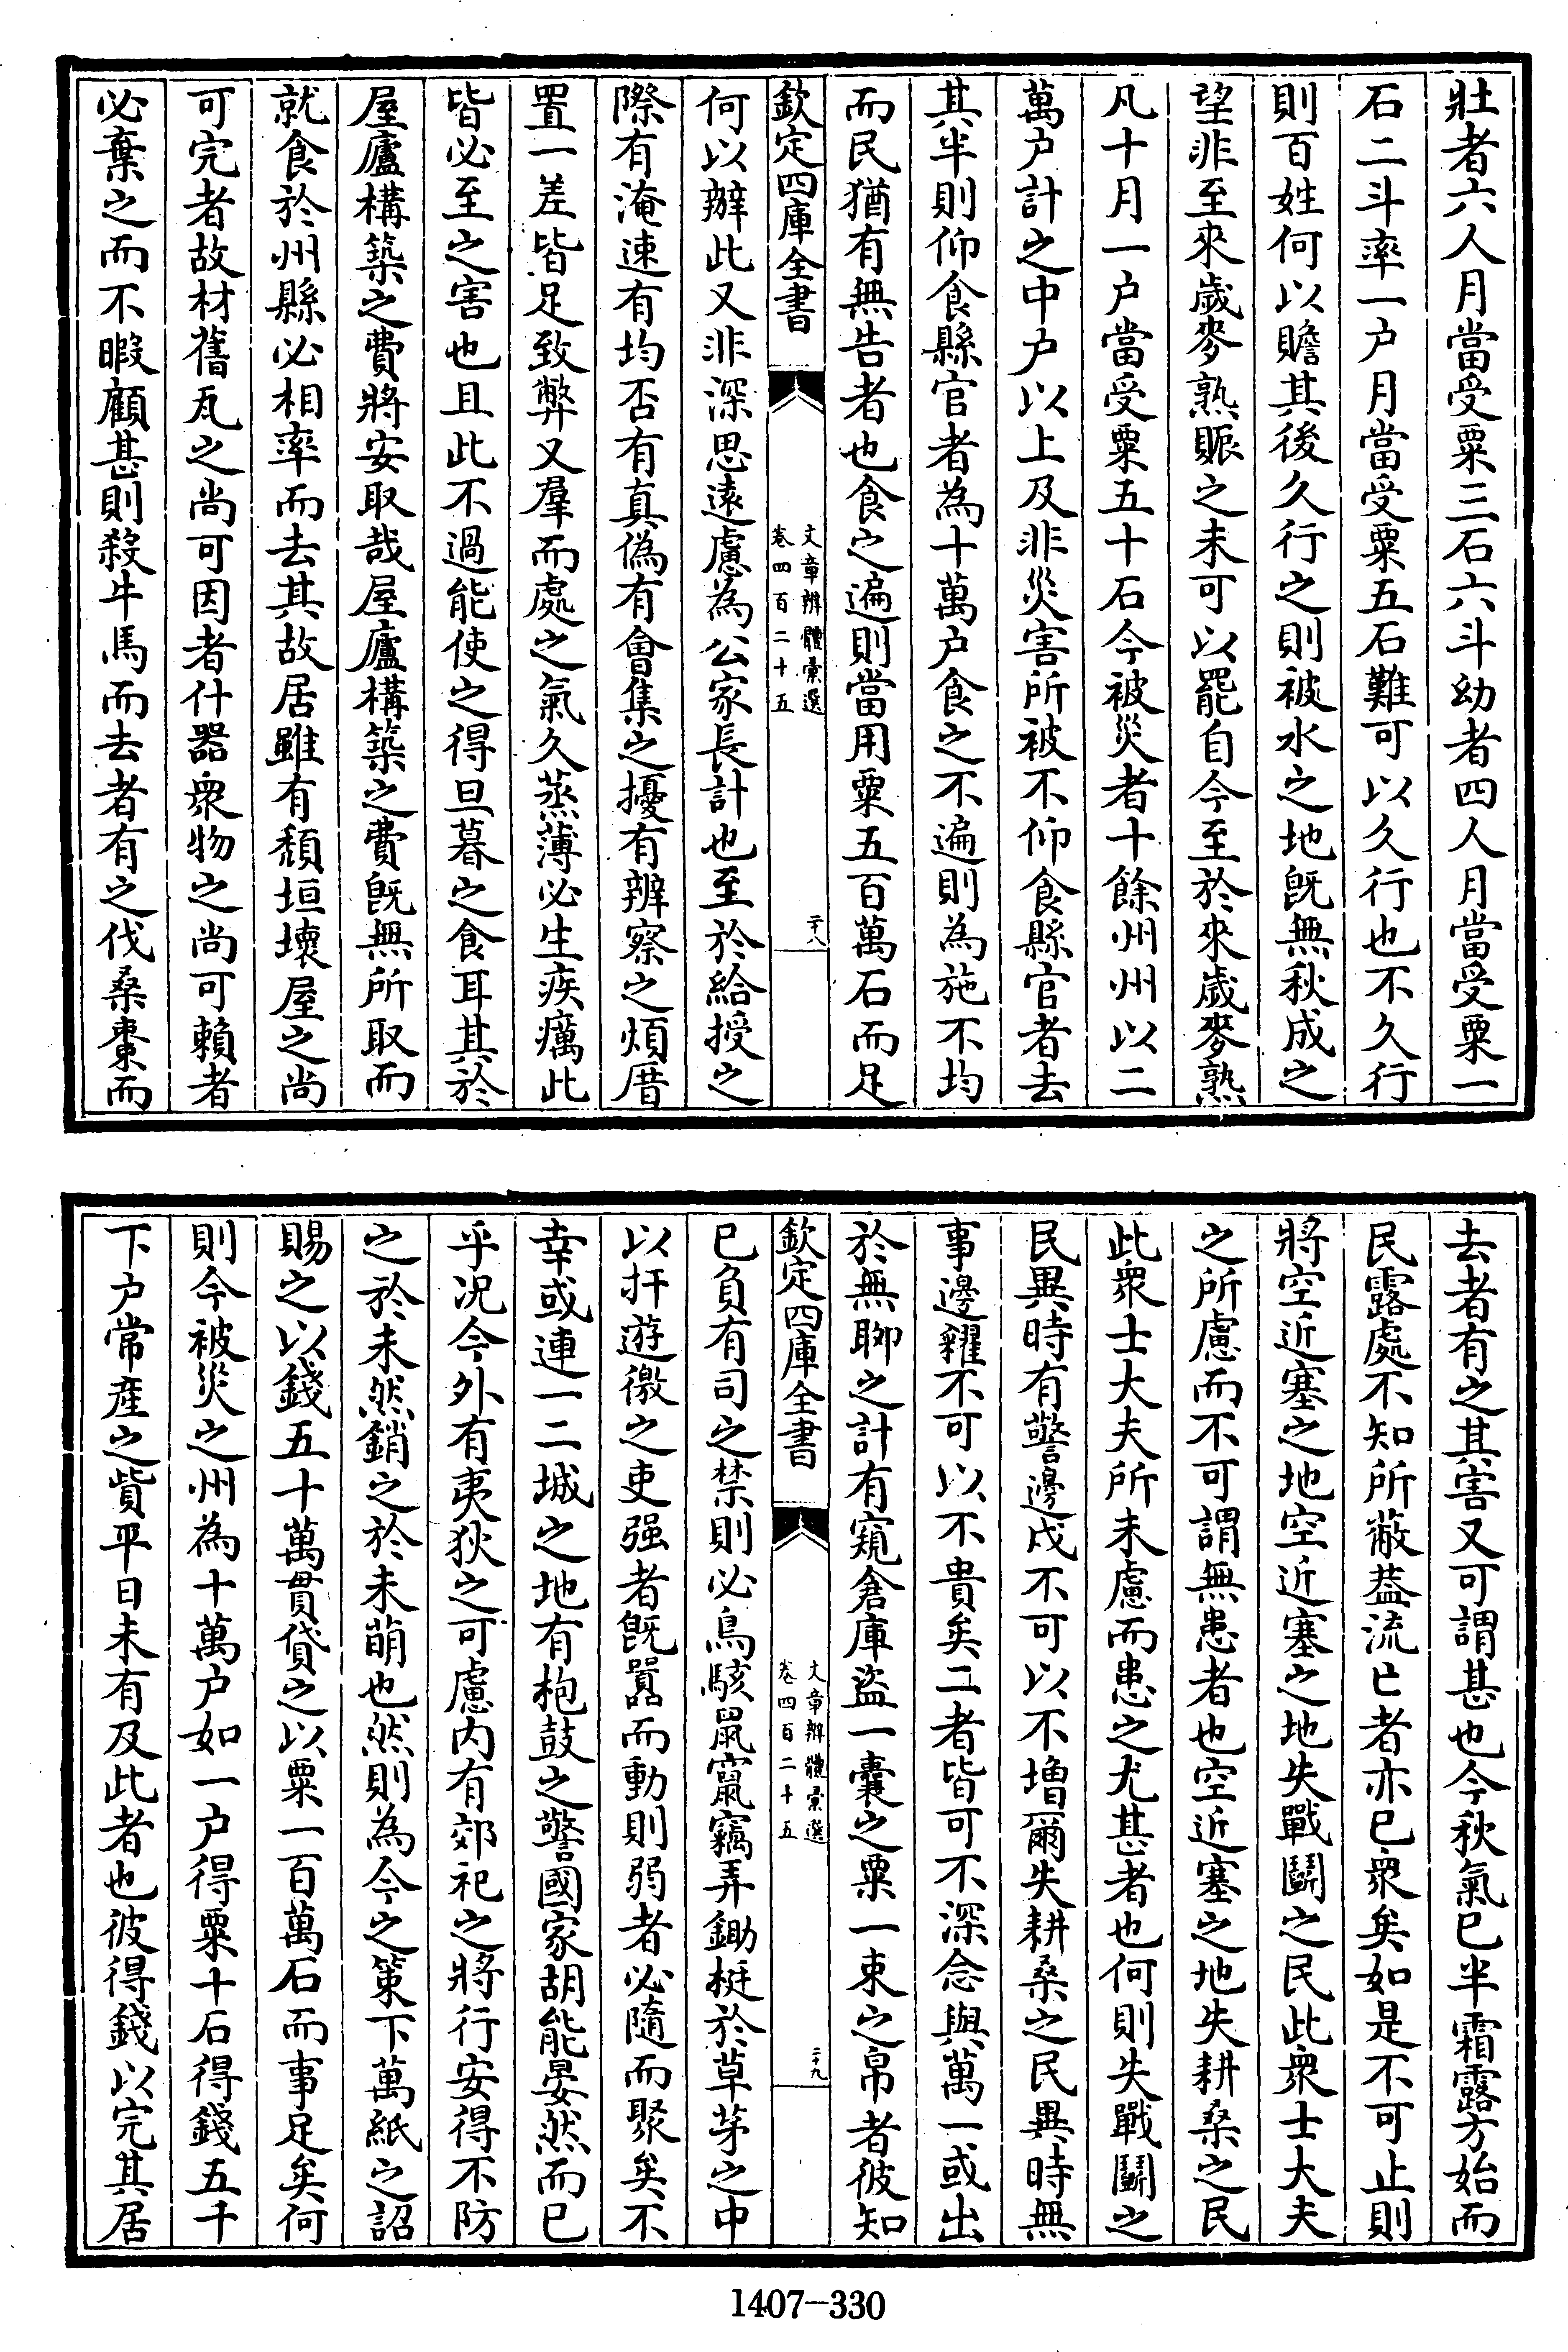 壯者六人月當受粟三石六斗幼者四人月當受粟一
石二斗率一户月當受粟五石難可以久行也不久行
則百姓何以贍其後久行之則被水之地既無秋成之
望非至來歲麥熟賑之未可以罷自今至於來歲麥熟
凡十月一户當受粟五十石今被災者十餘州州以二
萬户計之中户以上及非災害所被不仰食縣官者去
其半則仰食縣官者為十萬户食之不遍則為施不均
而民猶有無告者也食之遍則當用粟五百萬石而足
欽定四庫全書
文章辨體彚選
卷四百二十五
二十八
何以辦此又非深思逺慮為公家長計也至於給授之
際有淹速有均否有真偽有會集之擾有辨察之煩厝
置一差皆足致弊又羣而處之氣久蒸薄必生疾癘此
皆必至之害也且此不過能使之得旦暮之食耳其於
屋廬構築之費將安取哉屋廬構築之費既無所取而
就食於州縣必相率而去其故居雖有頽垣壞屋之尚
可完者故材舊瓦之尚可因者什器衆物之尚可賴者
必棄之而不暇顧甚則殺牛馬而去者有之伐桑棗而
去者有之其害又可謂甚也今秋氣已半霜露方始而
民露處不知所蔽葢流亡者亦已衆矣如是不可止則
將空近塞之地空近塞之地失戰鬭之民此衆士大夫
之所慮而不可謂無患者也空近塞之地失耕桑之民
此衆士大夫所未慮而患之尤甚者也何則失戰鬭之
民異時有警邊戍不可以不增爾失耕桑之民異時無
事邊糴不可以不貴矣二者皆可不深念與萬一或出
於無聊之計有窺倉庫盜一囊之粟一束之帛者彼知
欽定四庫全書
文章辨體彚選
卷四百二十五
二十九
已負有司之禁則必鳥駭鼠竄竊弄鋤梃於草茅之中
以扞遊徼之吏强者既嚣而動則弱者必隨而聚矣不
幸或連一二城之地有枹鼓之警國家胡能晏然而已
乎况今外有夷狄之可慮内有郊祀之將行安得不防
之於未然銷之於未萌也然則為今之策下萬紙之詔
賜之以錢五十萬貫貸之以粟一百萬石而事足矣何
則今被災之州為十萬户如一户得粟十石得錢五千
下户常產之貲平日未有及此者也彼得錢以完其居
1407-330